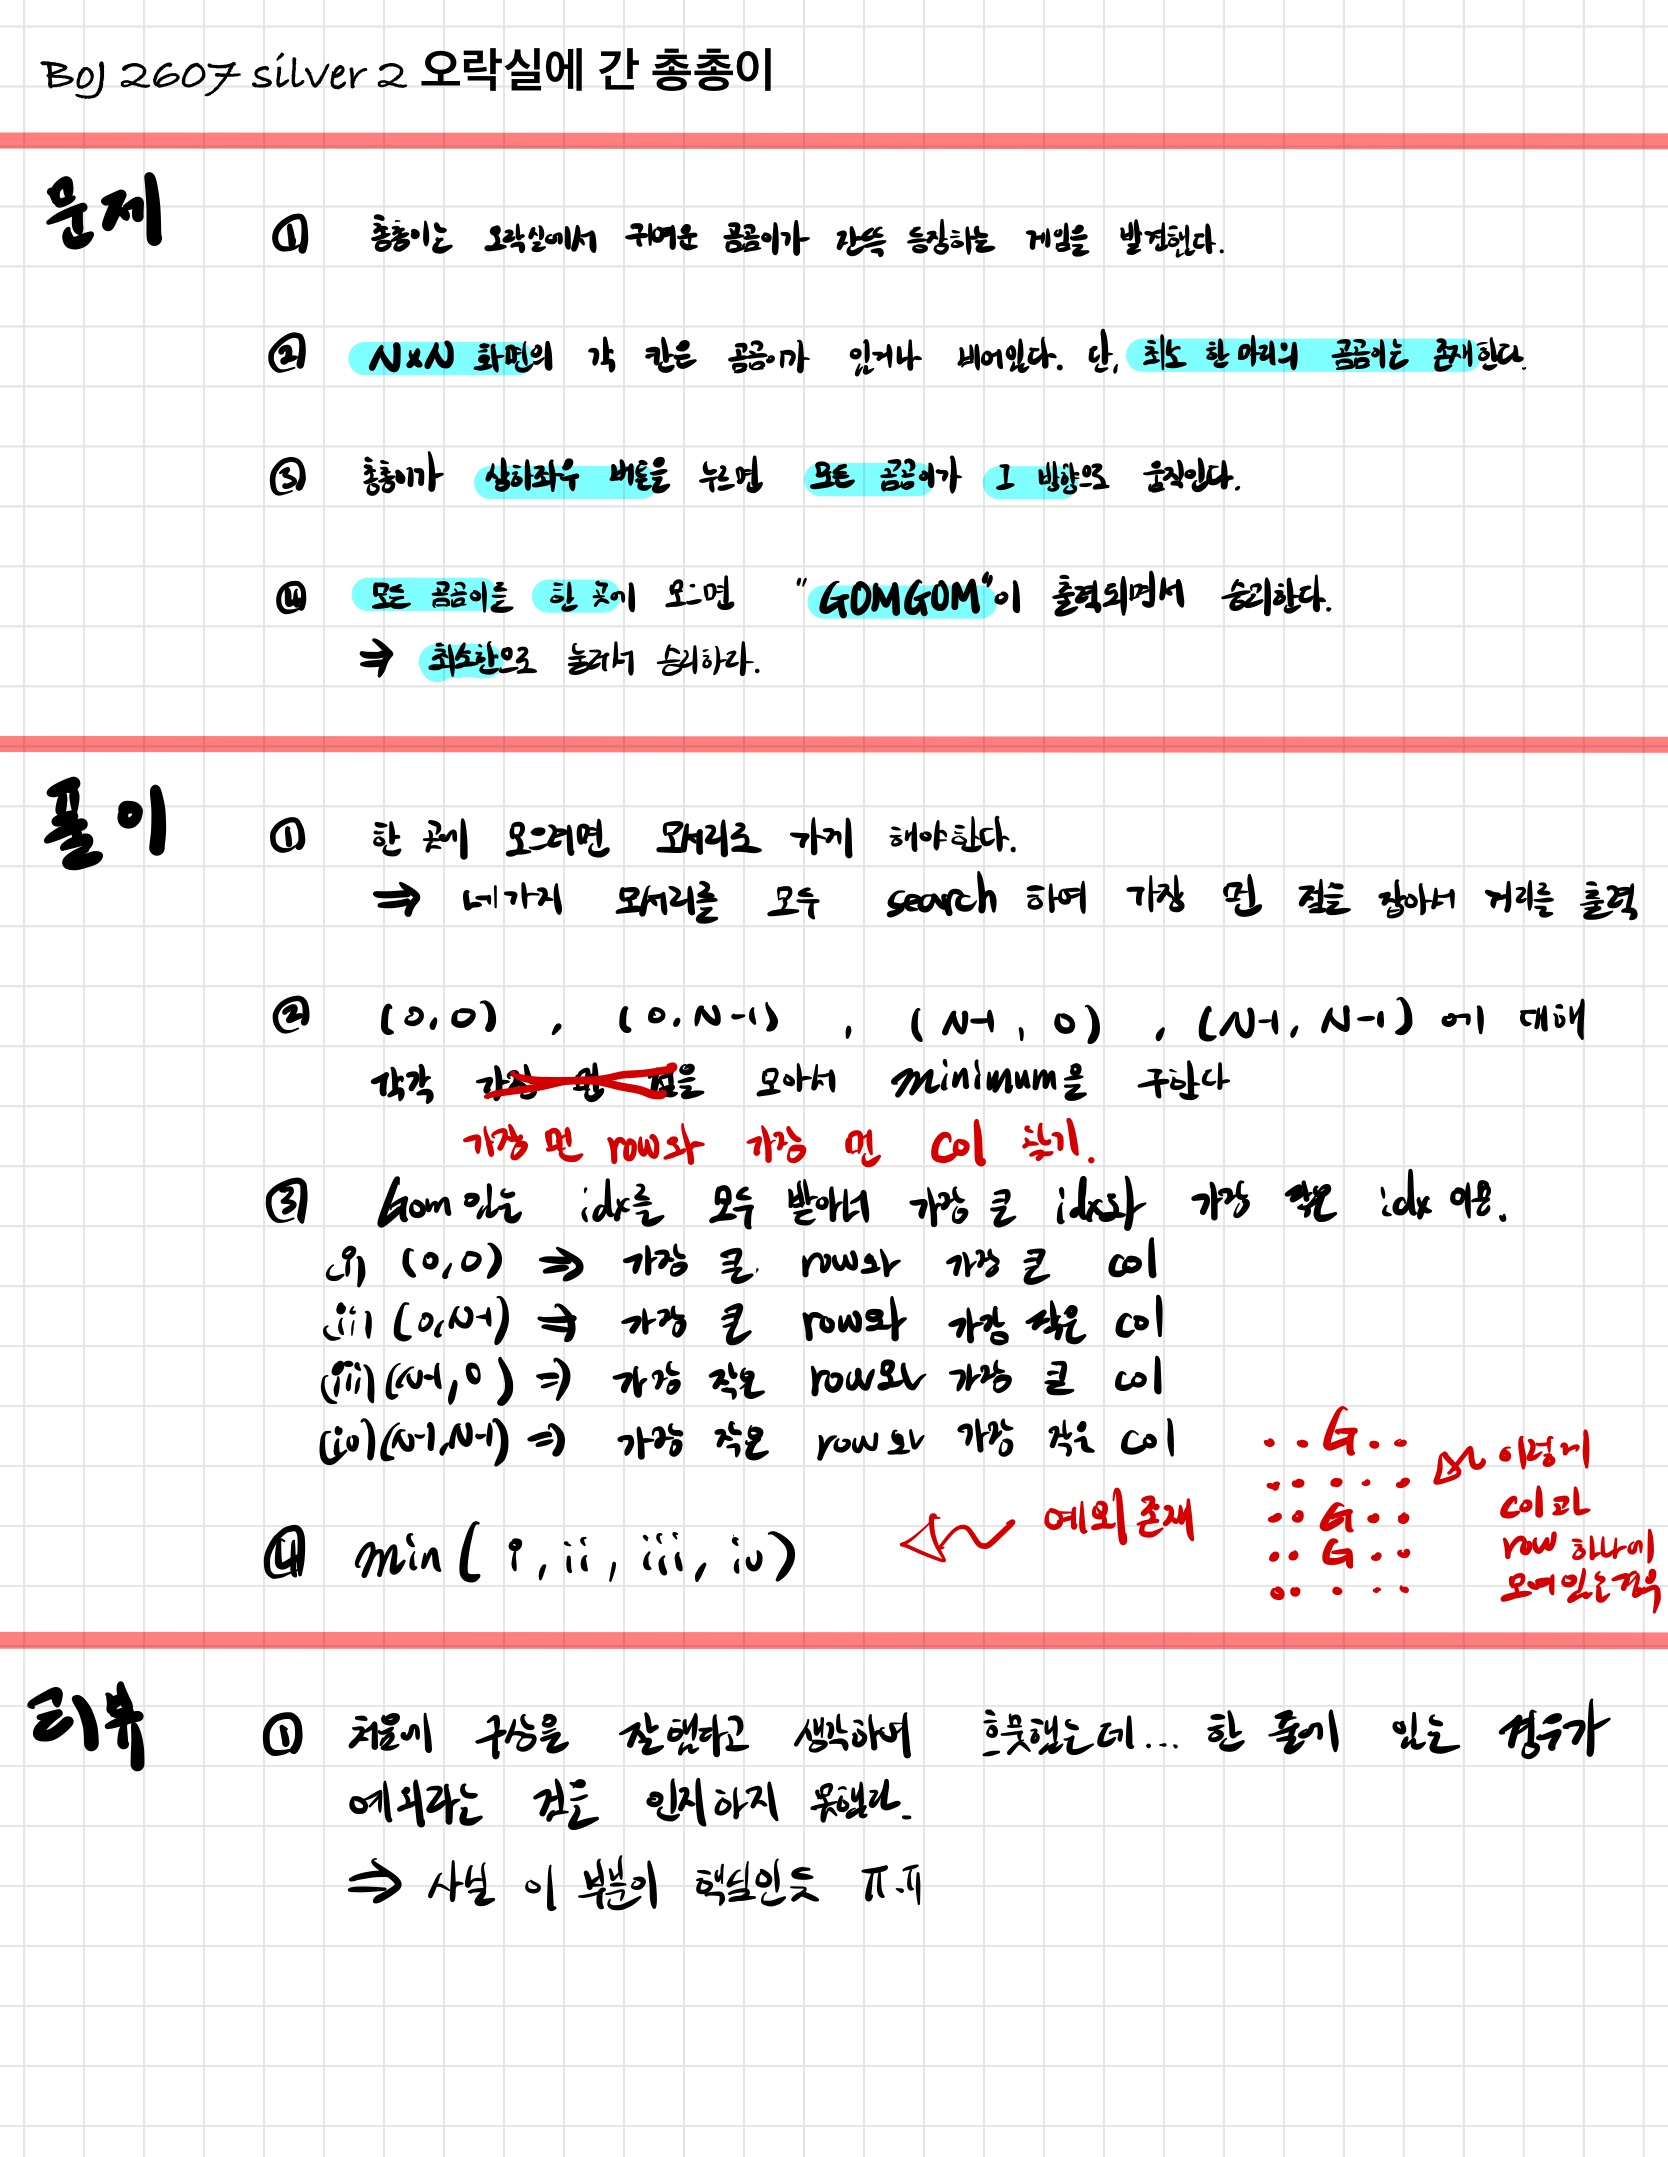 BOJ 2607 silver 2 오락실에 간 총총이
문제
① 총총이는 오락실에서 귀여운 곰곰이가 잔뜩 등장하는 게임을 발견했다.
② N×N 화면의 각 칸은 곰곰이가 있거나 비어있다. 단, 최소 한 마리의 곰곰이는 존재한다.
③ 총총이가 상하좌우 버튼을 누르면 모든 곰곰이가 그 방향으로 움직인다.
④ 모든 곰곰이를 한 곳에 모으면 "GOMGOM"이 출력되면서 승리한다.
⇒ 최소한으로 눌러서 승리하라.
풀이
① 한 곳에 모으려면 모서리로 가게 해야한다.
⇒ 네가지 모서리를 모두 search 하여 가장 먼 점을 잡아서 거리를 출력
② (0,0) , (0,N-1) , (N-1,0) , (N-1,N-1) 에 대해
각각 가장 먼 점을 모아서 minimum을 구한다
가장 먼 row와 가장 먼 col 찾기.
③ Gom 있는 idx를 모두 받아서 가장 큰 idx와 가장 작은 idx 이용.
(i) (0,0) ⇒ 가장 큰 row와 가장 큰 col
(ii) (0,N-1) ⇒ 가장 큰 row와 가장 작은 col
(iii) (N-1,0) ⇒ 가장 작은 row와 가장 큰 col
(iv) (N-1,N-1) ⇒ 가장 작은 row와 가장 작은 col
④ min( i, ii, iii, iv)
예외 존재
..G..
.....
..G..
..G..
.....
이렇게
col과
row 하나에
모여있는 경우
리뷰
① 처음에 구상을 잘했다고 생각하여 흐뭇했는데... 한 줄에 있는 경우가
예외라는 것을 인지하지 못했다.
⇒ 사실 이 부분이 핵심인듯 ㅠ.ㅠ